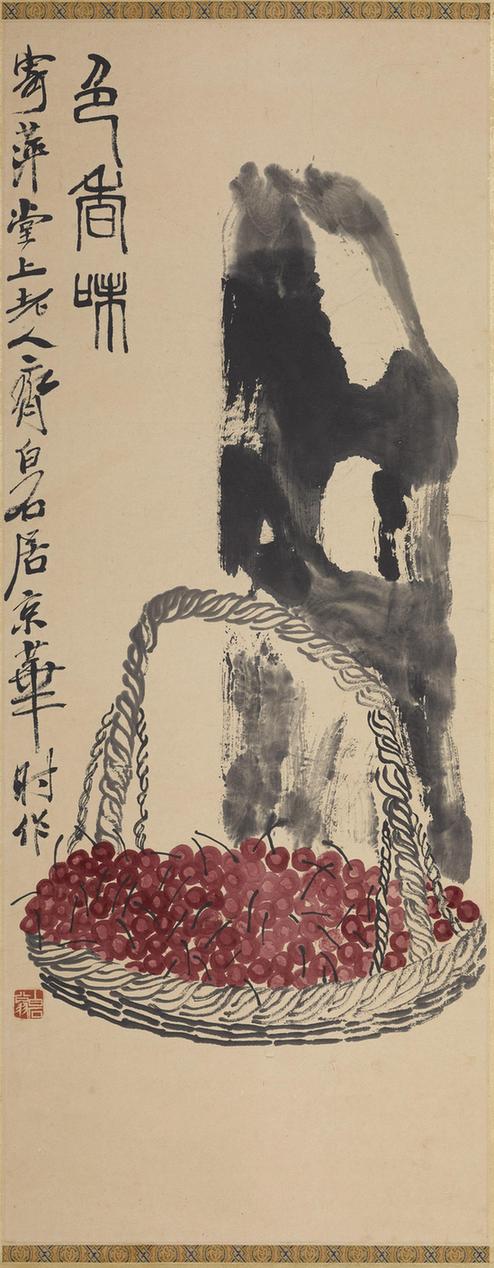 色香味
寄萍堂上老人齊白石居京華时作
白石翁